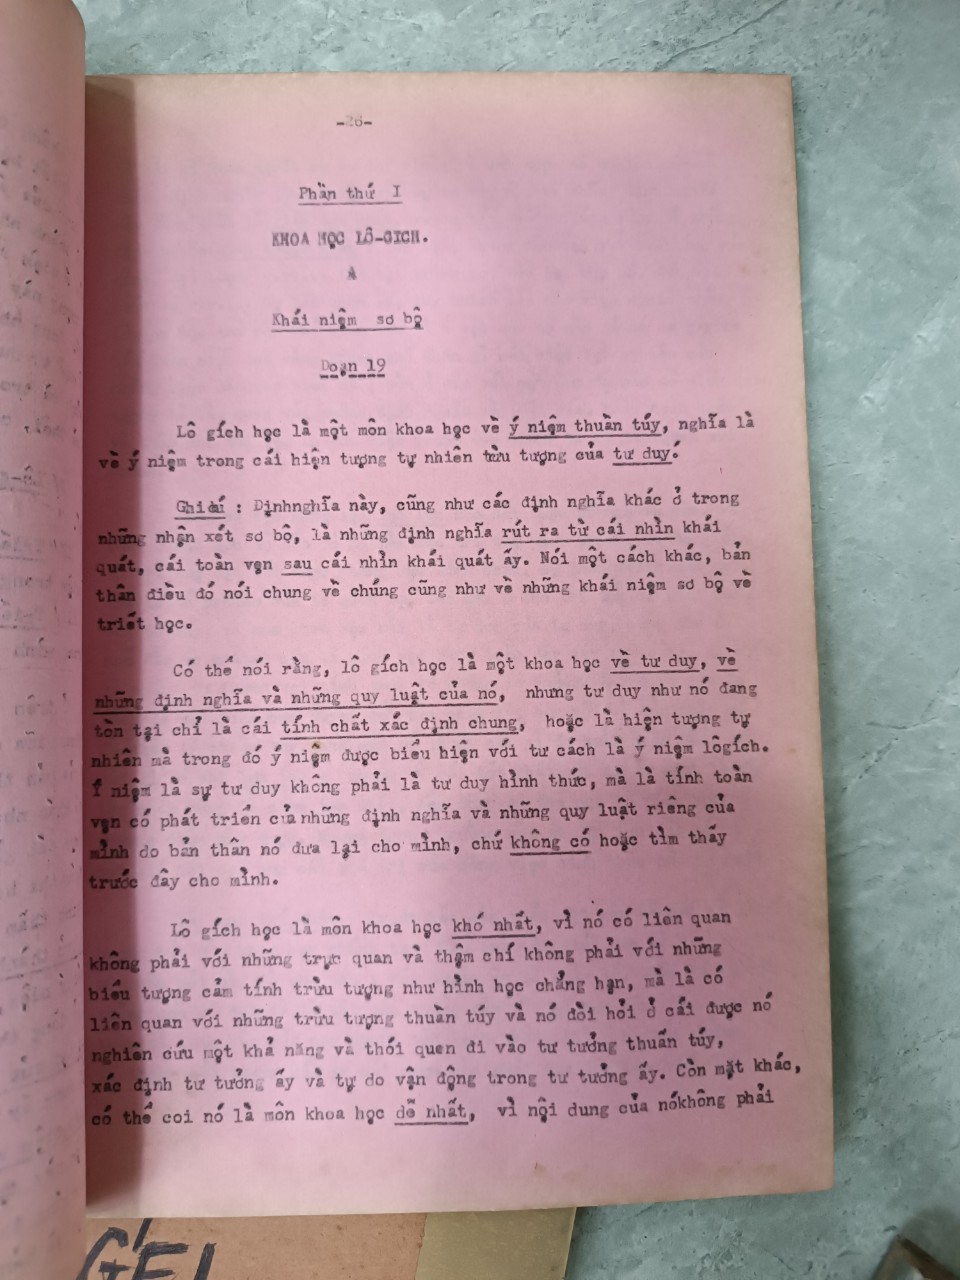 -26-
Phần thứ I
KHOA HỌC LÔ-GICH.
A
Khái niệm sơ bộ
Doạn 19
Lô gích học là một môn khoa học về ý niệm thuần túy, nghĩa là
về ý niệm trong cái hiện tượng tự nhiên trừu tượng của tư duy.
Ghi : Địnhnghĩa này, cũng như các định nghĩa khác ở trong
những nhận xét sơ bộ, là những định nghĩa rút ra từ cái nhìn khái
quát, cái toàn vẹn sau cái nhìn khái quát ấy. Nói một cách khác, bản
thân điều đó nói chung về chúng cũng như về những khái niệm sơ bộ về
triết học.
Có thể nói rằng, lô gích học là một khoa học về tư duy, về
những định nghĩa và những quy luật của nó, nhưng tư duy như nó đang
tồn tại chỉ là cái tính chất xác định chung, hoặc là hiện tượng tự
nhiên mà trong đó ý niệm được biểu hiện với tư cách là ý niệm lôgích.
Í niệm là sự tư duy không phải là tư duy hình thức, mà là tính toàn
vẹn có phát triển của những định nghĩa và những quy luật riêng của
mình do bản thân nó đưa lại cho mình, chứ không có hoặc tìm thấy
trước đây cho mình.
Lô gích học là môn khoa học khó nhất, vì nó có liên quan
không phải với những trực quan và thậm chí không phải với những
biểu tượng cảm tính trừu tượng như hình học chẳng hạn, mà là có
liên quan với những trừu tượng thuần túy và nó đòi hỏi ở cái được nó
nghiên cứu một khả năng và thói quen đi vào tư tưởng thuấn túy,
xác định tư tưởng ấy và tự do vận động trong tư tưởng ấy. Còn mặt khác,
có thể coi nó là môn khoa học dễ nhất, vì nội dung của nókhông phải
GEL